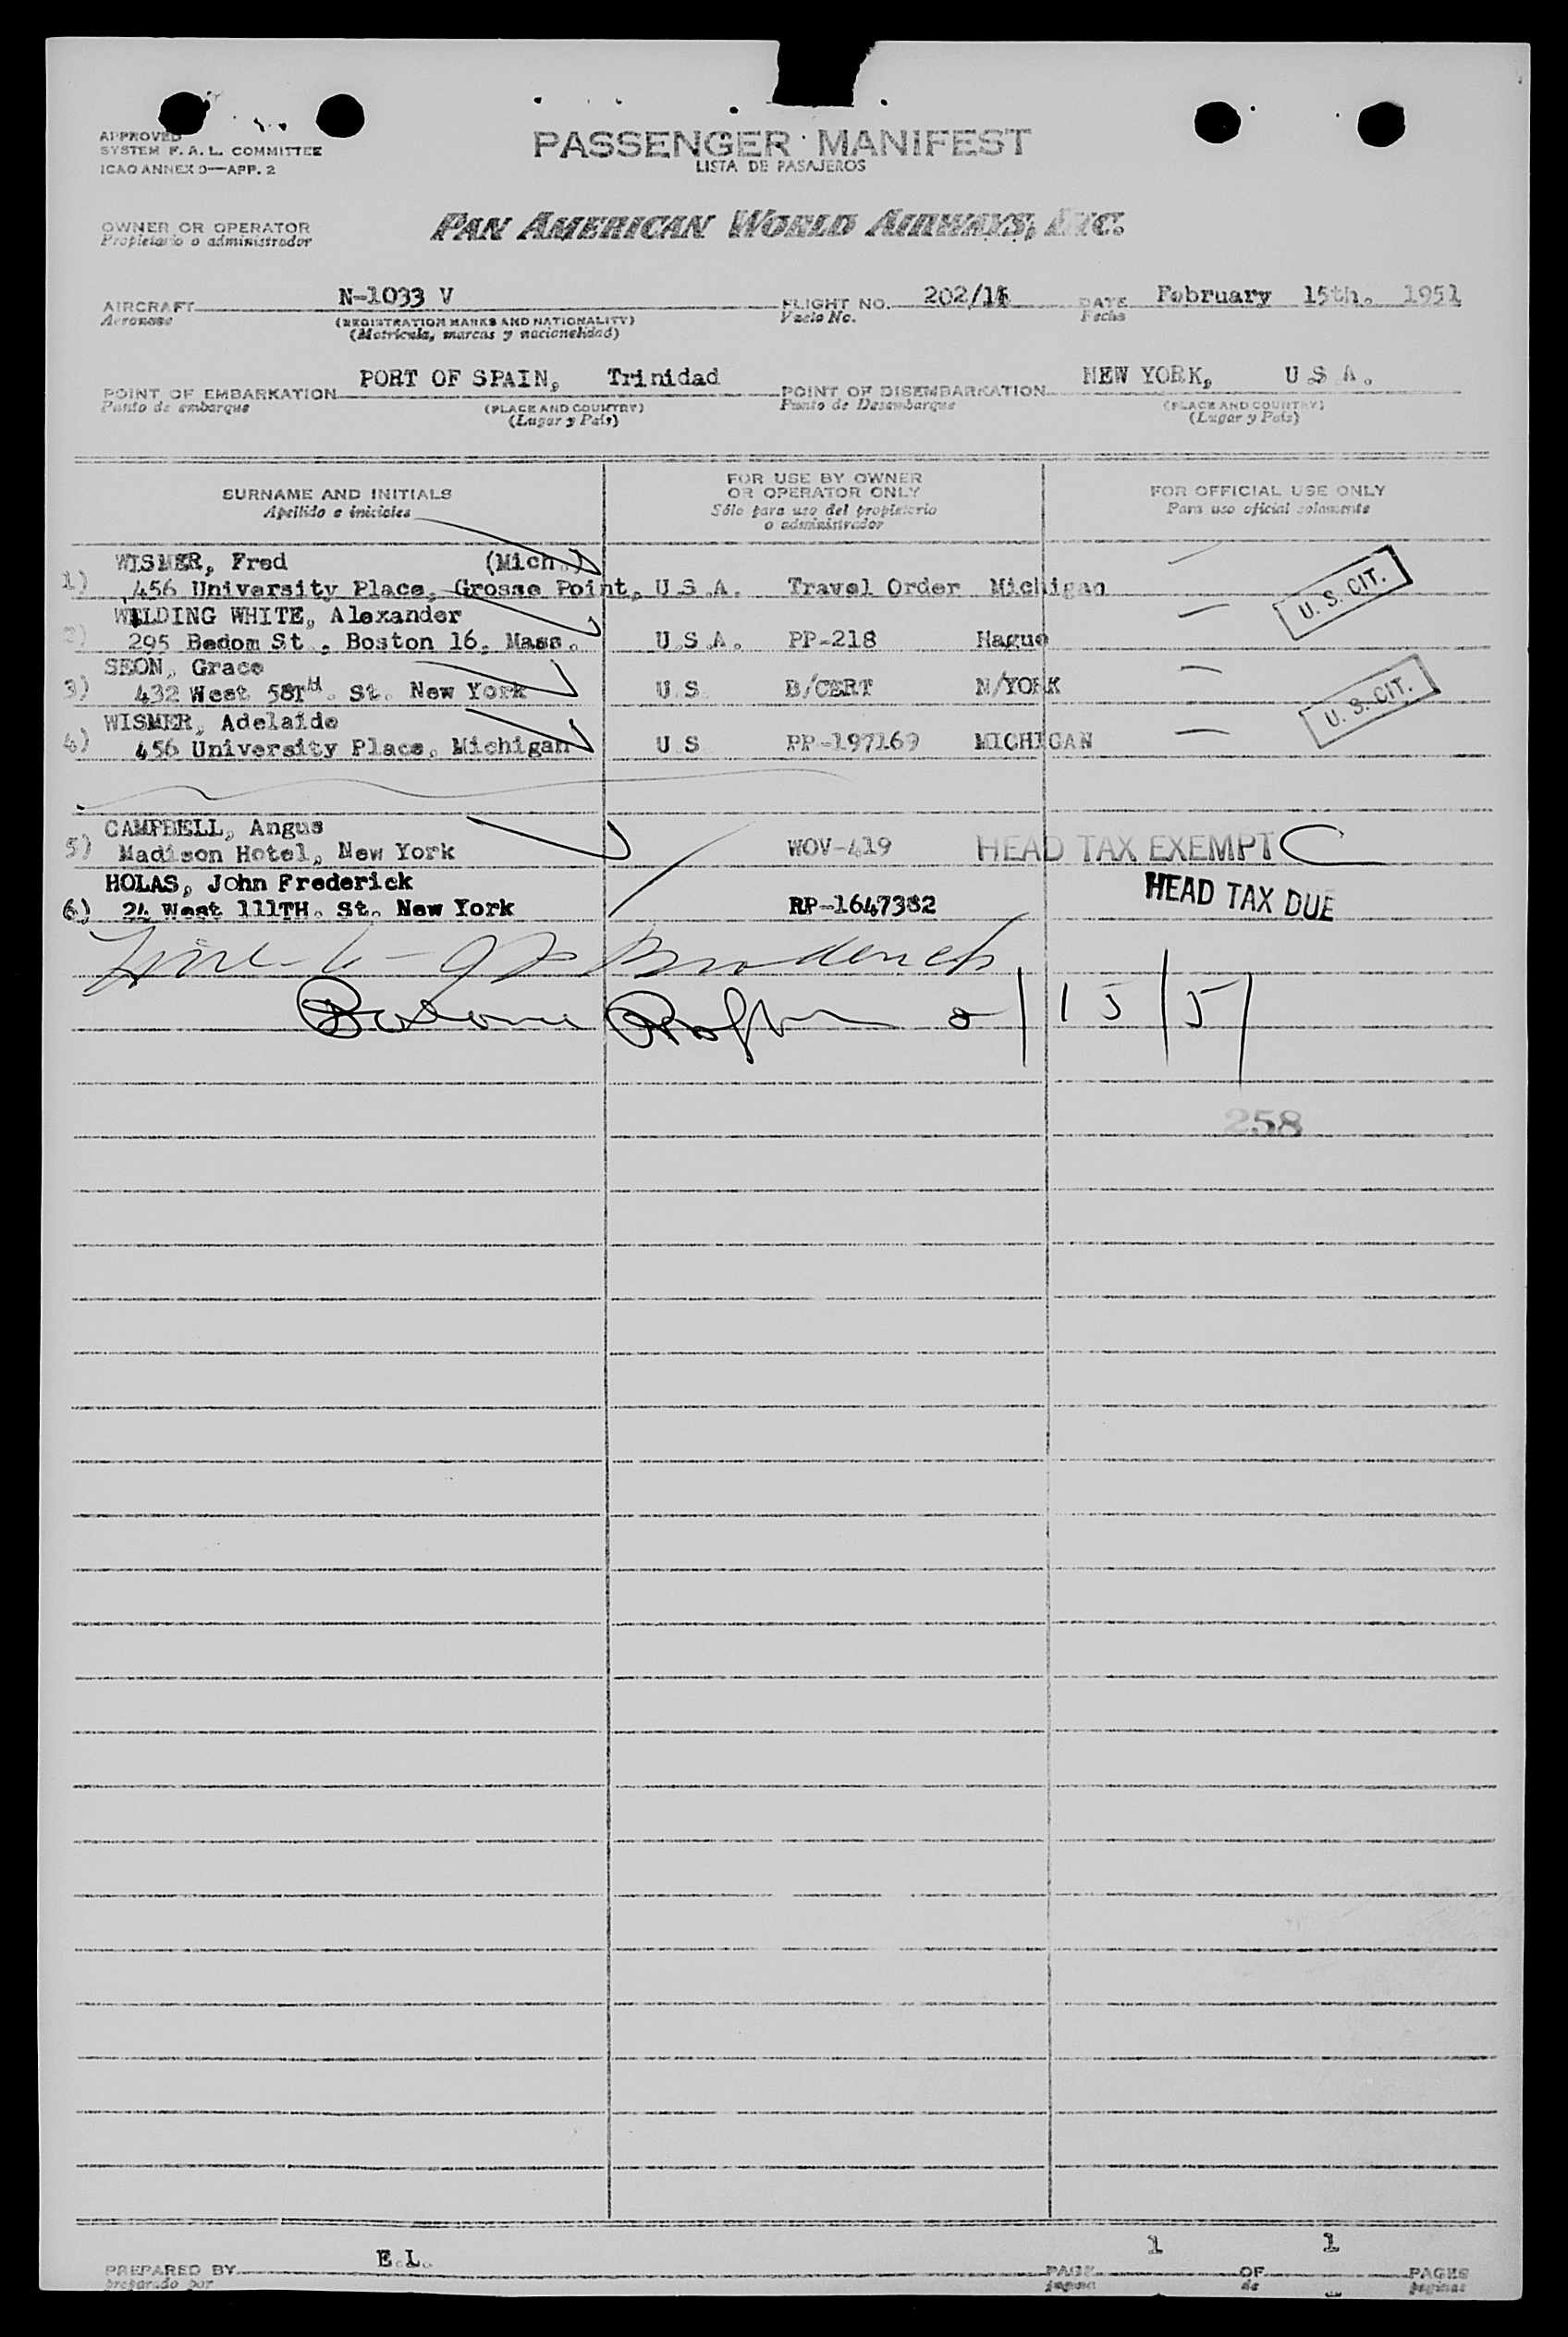 APPROVED
SYSTEM F. A. L. COMMITTEE
ICAO ANNEX 9—APP. 2
PASSENGER MANIFEST
LISTA DE PASAJEROS
OWNER OR OPERATOR
Propietario o administrador
PAN AMERICAN WORLD AIRWAYS, INC.
AIRCRAFT N-1033 V FLIGHT NO. 202/14 DATE February 15th. 1951
Aeronave (REGISTRATION MARKS AND NATIONALITY) Vuelo No. Fecha
(Matrícula, marcas y nacionalidad)
POINT OF EMBARKATION PORT OF SPAIN, Trinidad POINT OF DISEMBARKATION NEW YORK, U S A.
Punto de embarque (PLACE AND COUNTRY) Punto de Desembarque (PLACE AND COUNTRY)
(Lugar y País) (Lugar y País)
SURNAME AND INITIALS FOR USE BY OWNER OR OPERATOR ONLY FOR OFFICIAL USE ONLY
Apellido e iniciales Sólo para uso del propietario o administrador Para uso oficial solamente
WISMER, Fred (Mich.)
1) 456 University Place, Grosse Point, U.S.A. Travel Order Michigan
U. S. CIT.
WILDING WHITE, Alexander
2) 295 Bedom St., Boston 16, Mass. U.S.A. PP-218 Hague
SEON, Grace
3) 432 West 58TH. St. New York U.S B/CERT N/YORK
U. S. CIT.
WISMER, Adelaide
4) 456 University Place, Michigan U.S PP-197169 MICHIGAN
CAMPBELL, Angus
5) Madison Hotel, New York WOV-419 HEAD TAX EXEMPT C
HOLAS, John Frederick
6) 24 West 111TH. St. New York RP-1647382 HEAD TAX DUE
Line - 6 -
2/15/51
258
PREPARED BY E.L. PAGE 1 OF 1 PAGES
preparado por página de páginas